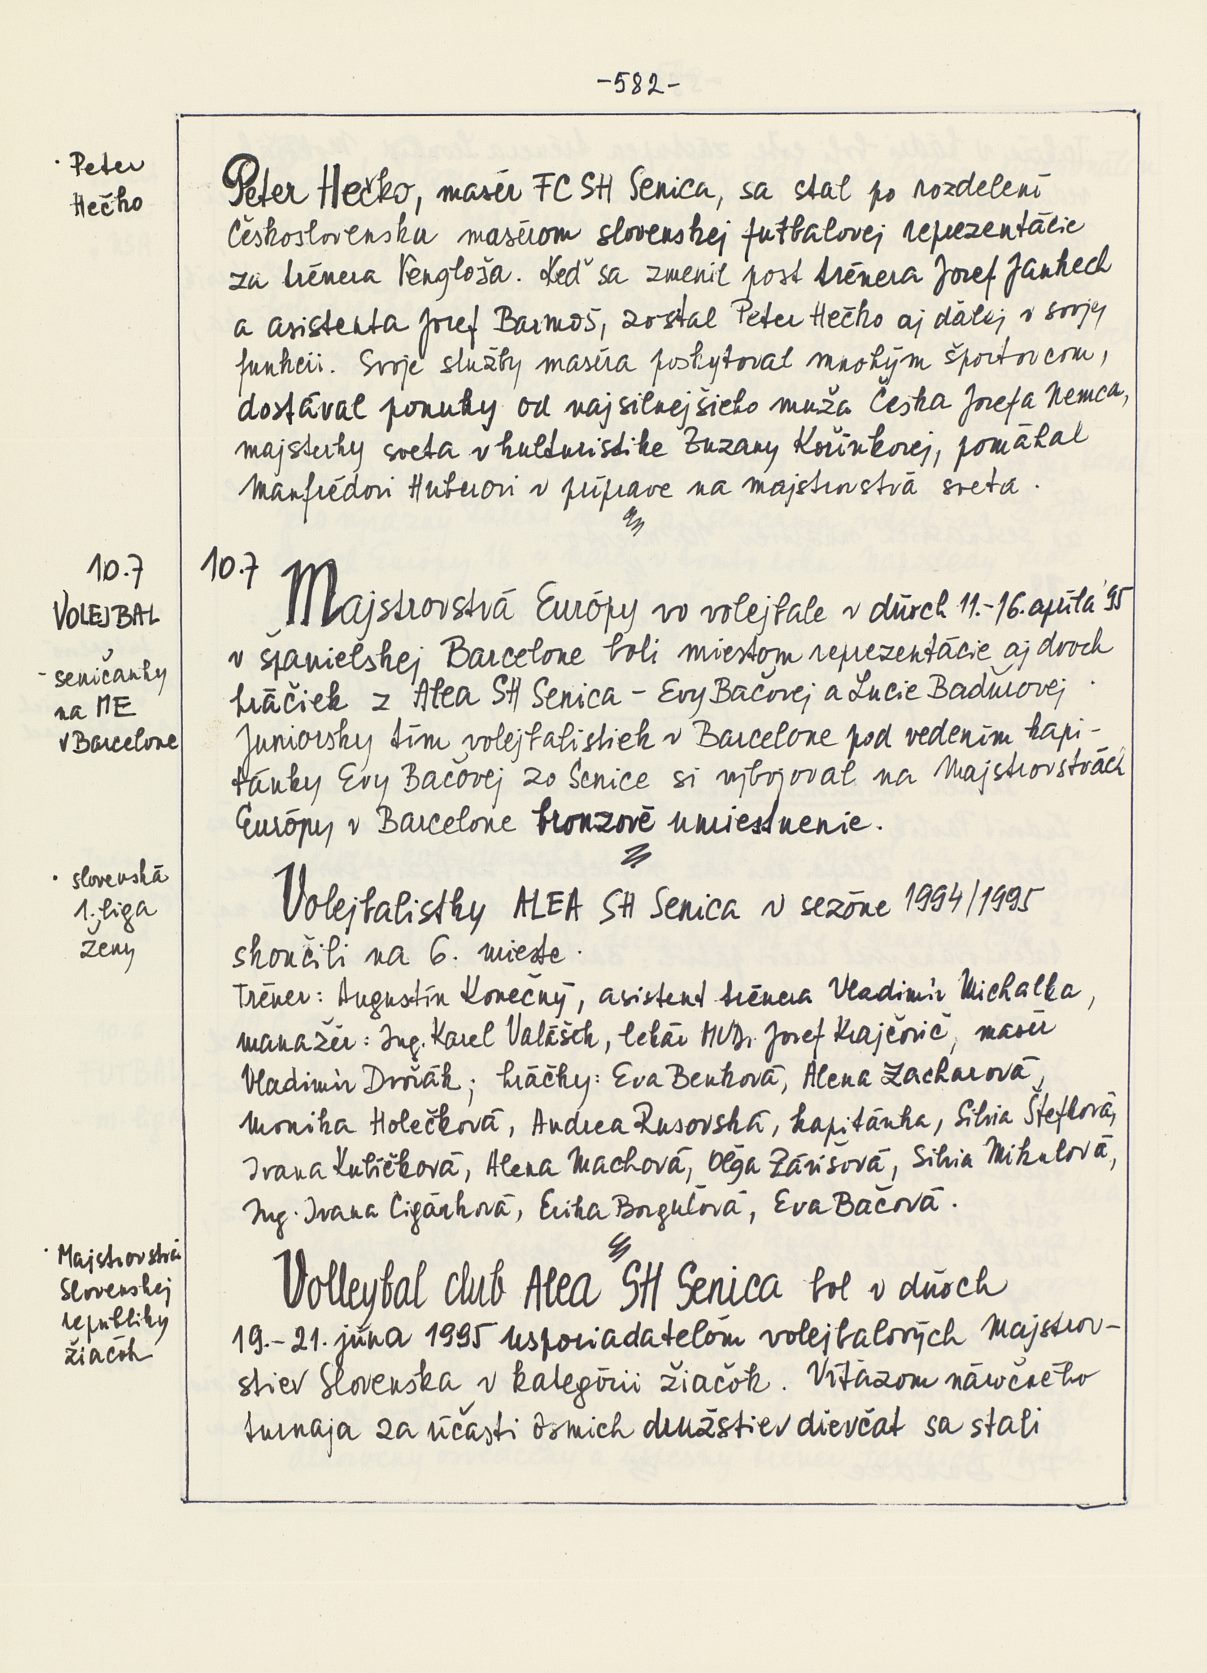 -582-
· Peter
Hečko
Peter Hečko, masér FC SH Senica, sa stal po rozdelení
Československa masérom slovenskej futbalovej reprezentácie
za trénera Vengloša. Keď sa zmenil post trénera Jozef Jankech
a asistenta Jozef Barmoš, zostal Peter Hečko aj ďalej v svojej
funkcii. Svoje služby maséra poskytoval mnohým športovcom,
dostával ponuky od najsilnejšieho muža Česka Jozefa Nemca,
majsterky sveta v kulturistike Zuzany Kořínkovej, pomáhal
Manfrédovi Huberovi v príprave na majstrovstvá sveta.
10.7
VOLEJBAL
- seničanky
na ME
v Barcelone
10.7 Majstrovstvá Európy vo volejbale v dňoch 11.-16. apríla '95
v španielskej Barcelone boli miestom reprezentácie aj dvoch
hráčiek z Alea SH Senica - Evy Bačovej a Lucie Baďurovej.
Juniorsky tím volejbalistiek v Barcelone pod vedením kapi-
tánky Evy Bačovej zo Senice si vybojoval na Majstrovstvách
Európy v Barcelone bronzové umiestnenie.
· slovenská
1. liga
ženy
Volejbalistky ALEA SH Senica v sezóne 1994/1995
skončili na 6. mieste.
Tréner: Augustín Konečný, asistent trénera Vladimír Michalka,
manažér: Ing. Karel Valášek, lekár MUDr. Jozef Krajčovič, masér
Vladimír Dvořák; hráčky: Eva Benková, Alena Zacharová,
Monika Holečková, Andrea Rusovská, kapitánka, Silvia Štefková,
Ivana Kuličková, Alena Machová, Oľga Závišová, Silvia Mikulová,
Ing. Ivana Cigánková, Erika Borguľová, Eva Bačová.
· Majstrovstvá
Slovenskej
republiky
žiačok
Volleybal club Alea SH Senica bol v dňoch
19.-21. júna 1995 usporiadateľom volejbalových Majstrov-
stiev Slovenska v kategórii žiačok. Víťazom náročného
turnaja za účasti ôsmich družstiev dievčat sa stali